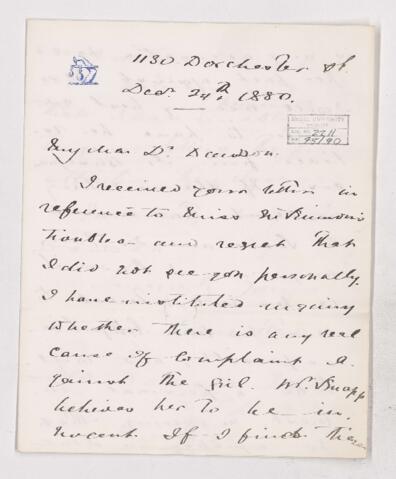 1130 Dorchester St.
Decr 24th, 1880.
McGILL UNIVERSITY
ACC. NO. 2211
REF. 95/90
My dear Dr Dawson.
I received your letter in
reference to Miss McKinnon's
troubles and regret that
I did not see you personally.
I have instituted inquiry
whether there is any real
cause of complaint a-
gainst the girl. Mr. Knapp
believes her to be in-
nocent. If I find